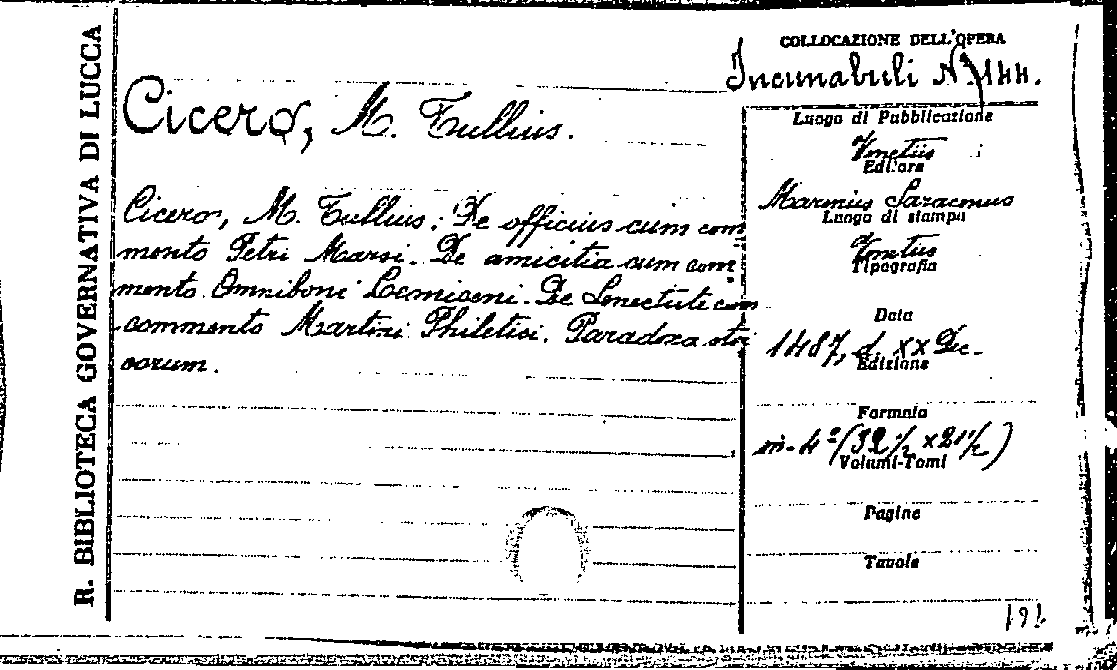 R. BIBLIOTECA GOVERNATIVA DI LUCCA
COLLOCAZIONE DELL'OPERA
Incunabuli N.º 144.
Cicero, M. Tullius.
Cicero, M. Tullius: De officiis cum com
mento Petri Marsi. De amicitia cum com
mento Omniboni Leoniceni. De Senectute cum
commento Martini Philetici. Paradoxa stoi
corum.
Luogo di Pubblicazione
Venetiis
Editore
Marinus Saracenus
Luogo di stampa
Venetiis
Tipografia
Data
1487, d. XX Dec.
Edizione
Formato
in-4º (32½ x 21½)
Volumi-Tomi
Pagine
Tavole